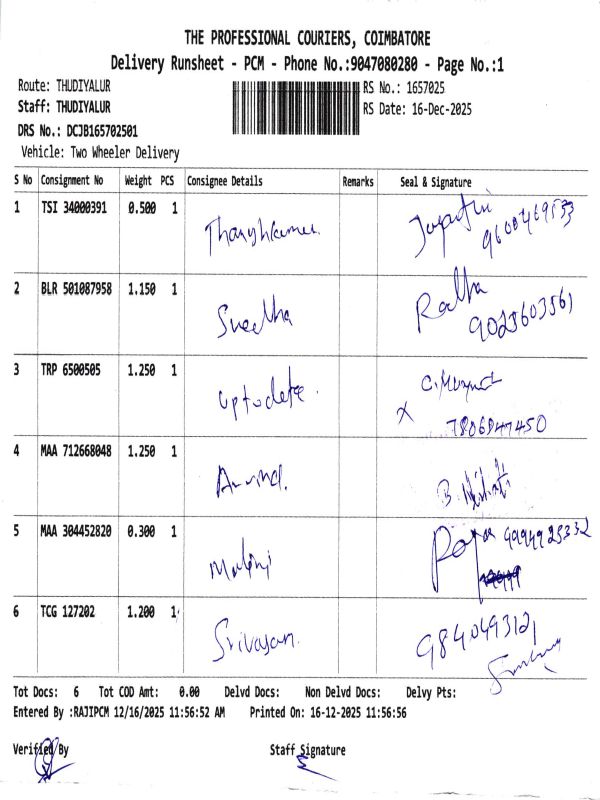 THE PROFESSIONAL COURIERS, COIMBATORE
Delivery Runsheet - PCM - Phone No.:9047080280 - Page No.:1
Route: THUDIYALUR
RS No.: 1657025
Staff: THUDIYALUR
RS Date: 16-Dec-2025
DRS No.: DCJB165702501
Vehicle: Two Wheeler Delivery
S No Consignment No Weight PCS Consignee Details Remarks Seal & Signature
1 TSI 34000391 0.500 1
9600469533
2 BLR 501087958 1.150 1 Sneelha Radha
9025603561
3 TRP 6500505 1.250 1 uptodate.
X 7806847450
4 MAA 712668048 1.250 1 Arvind.
5 MAA 304452820 0.300 1 Malini
6 TCG 127202 1.200 1 Srivasan. 9840493121
Tot Docs: 6 Tot COD Amt: 0.00 Delvd Docs: Non Delvd Docs: Delvy Pts:
Entered By :RAJIPCM 12/16/2025 11:56:52 AM Printed On: 16-12-2025 11:56:56
Verified By Staff Signature